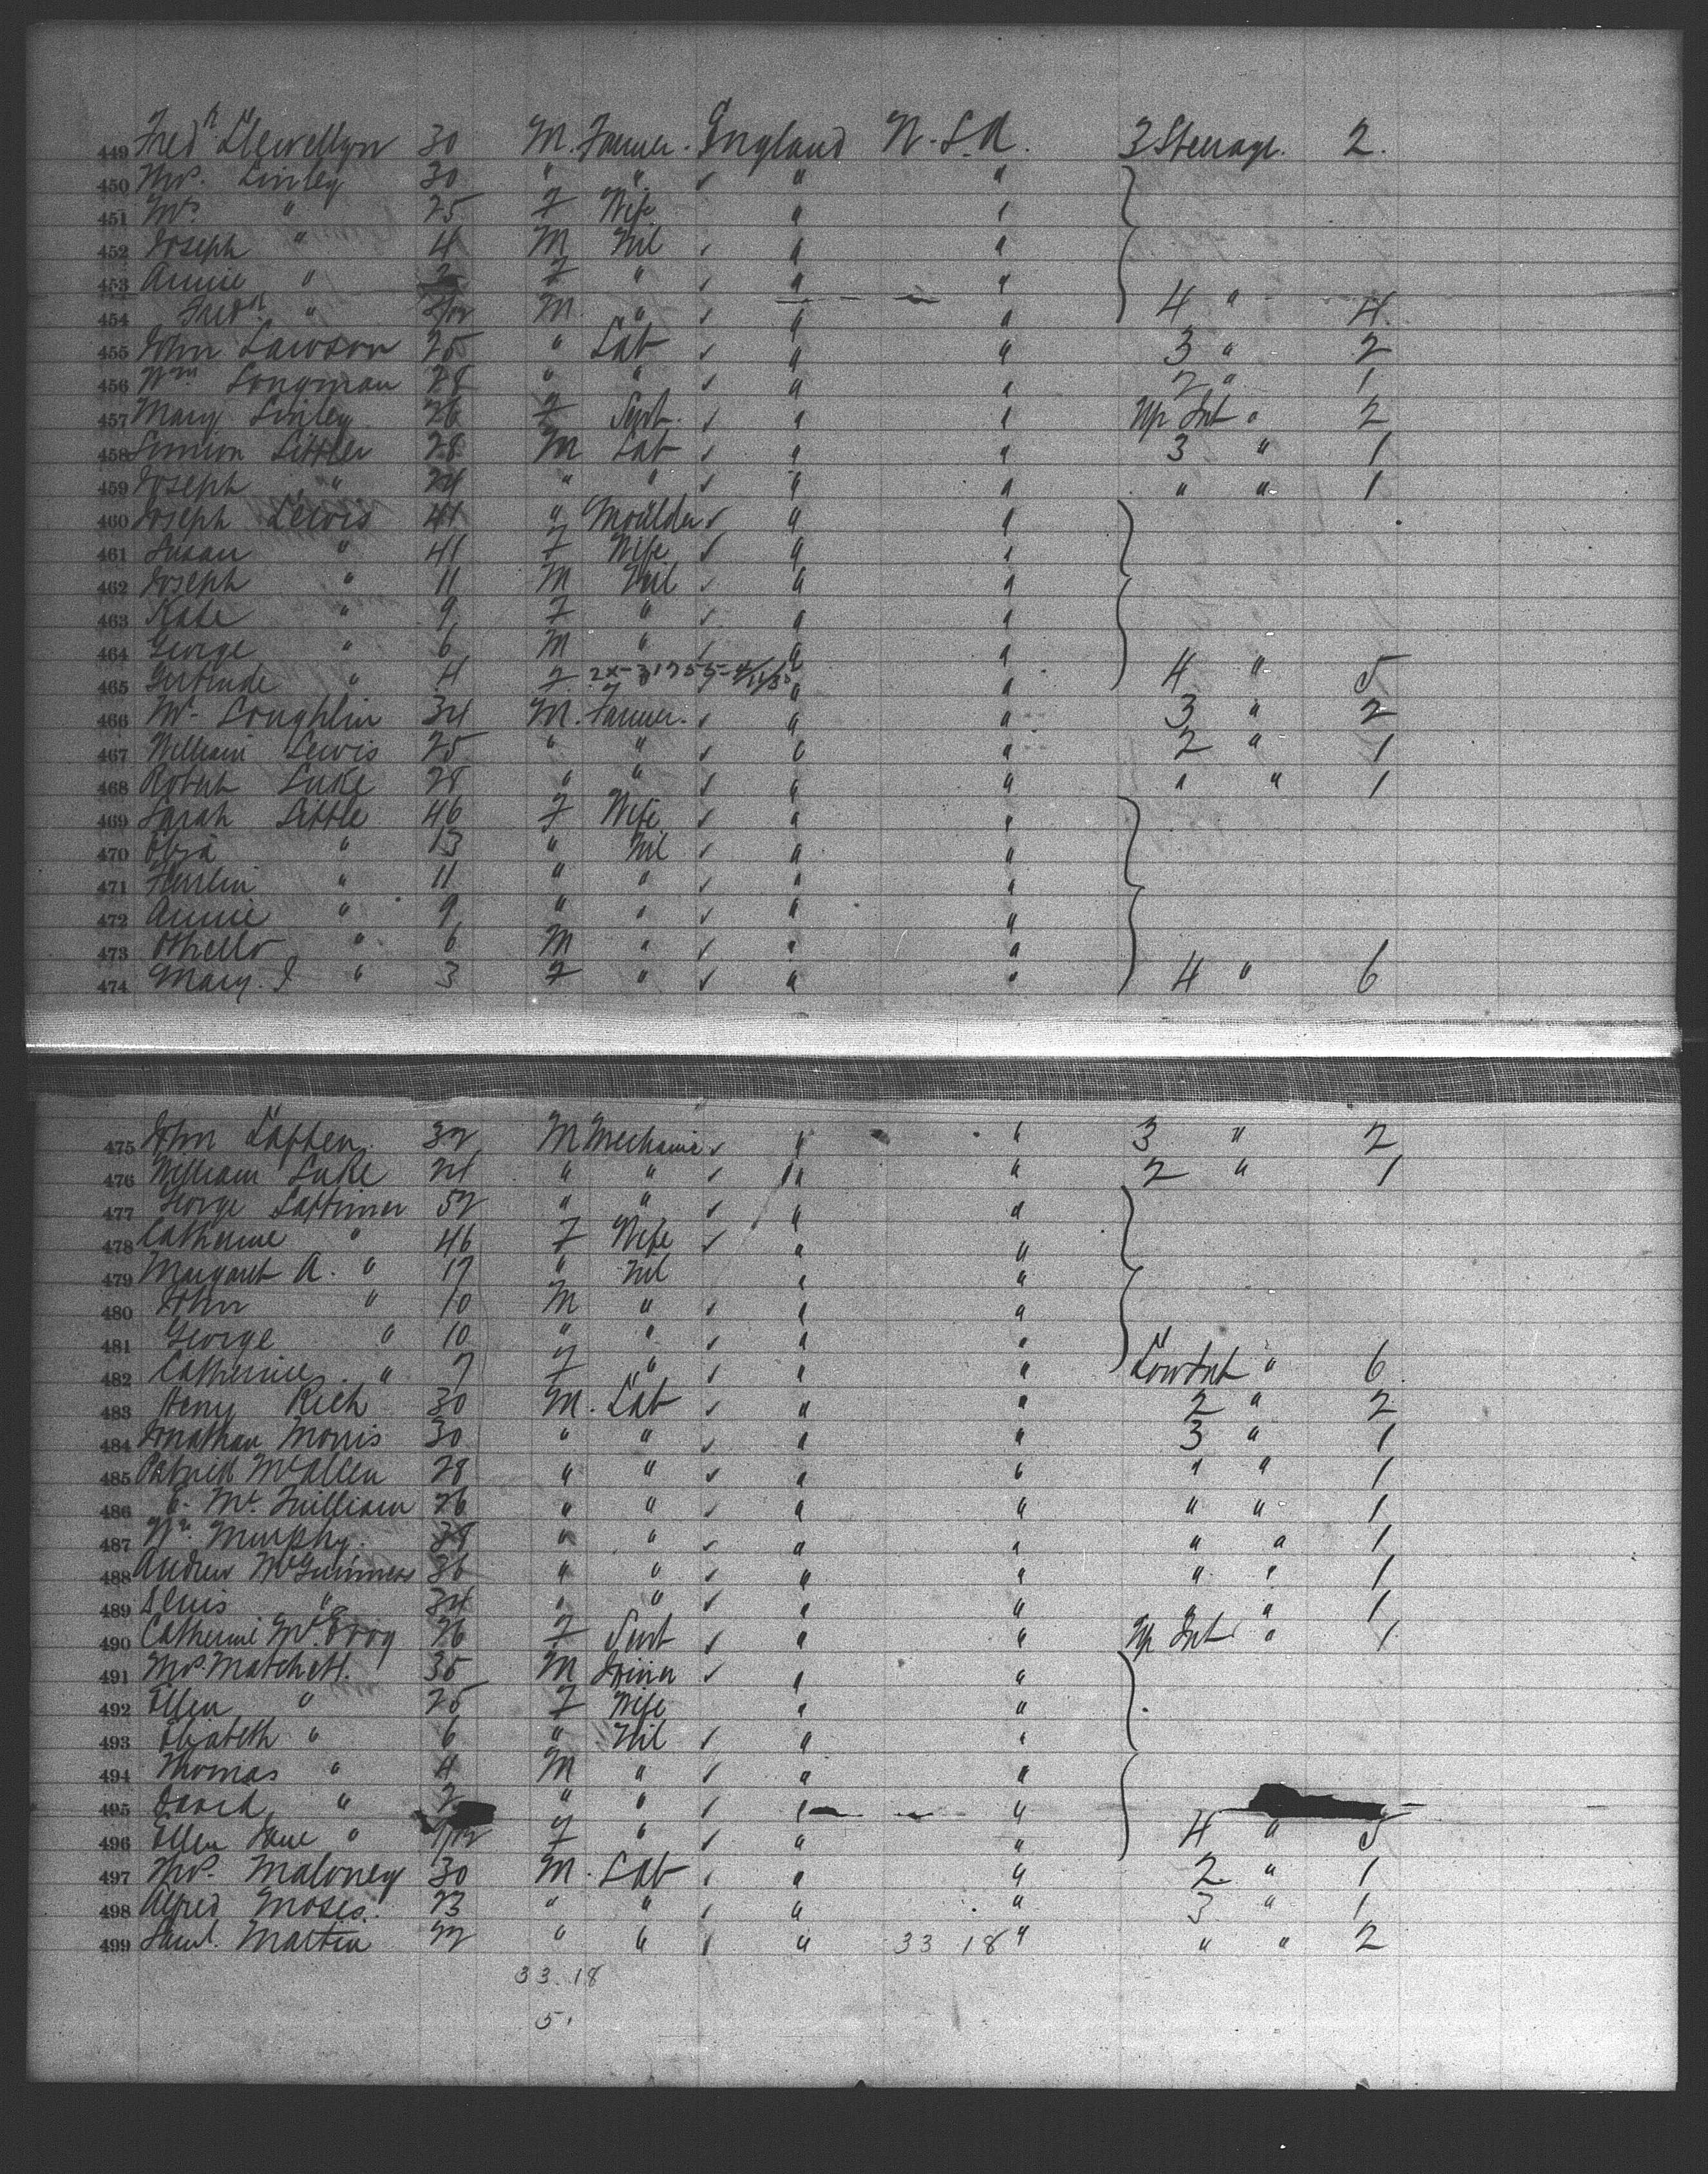 449 Fredk Llewellyn 30 M. Farmer. England U.S.A. 3 Steerage. 2.
450 Thos. Linley 30 " " " "
451 Mrs " 25 F Wife " "
452 Joseph " 4 M Nil " "
453 Annie " 2 F " " "
454 Fredk " /12 M. " " " 4 " 4
455 John Lawson 25 " Lab " " 3 " 2
456 Wm Longman 28 " " " " 2 " 1
457 Mary Linley 26 F Servt. " " Up Int " 2
458 Simion Littler 28 M Lab " " 3 " 1
459 Joseph " 24 " " " " " " 1
460 Joseph Lewis 41 " Moulder " "
461 Susan " 41 F Wife " "
462 Joseph " 11 M Nil " "
463 Kate " 9 F " " "
464 George " 6 M " " "
465 Gertrude " 4 F 2x-31755- " " 4 " 5
466 Mr. Loughlin 34 M. Farmer. " " 3 " 2
467 William Lewis 25 " " " " 2 " 1
468 Robert Luke 28 " " " " " " 1
469 Sarah Little 46 F Wife " "
470 " 13 " Nil " "
471 " 11 " " " "
472 Annie " 9 " " " "
473 Othello " 6 M " " "
474 Mary. J " 3 F " " " 4 " 6
475 John 32 M Mechanic " " 3 " 2
476 William Luke 24 " " " " 2 " 1
477 George Lattimer 52 " " " "
478 Catherine " 46 F Wife " "
479 Margaret A. " 17 " Nil " "
480 John " 10 M " " "
481 George " 10 " " " "
482 Catherine " 7 F " " " Low Int " 6
483 Henry Rich 30 M. Lab " " 2 " 2
484 Jonathan Morris 30 " " " " 3 " 1
485 Patrick McAllen 28 " " " " " " 1
486 26 " " " " " " 1
487 Wm. Murphy. 38 " " " " " " 1
488 Andrew McGuinness 36 " " " " " " 1
489 Denis " 34 " " " " " " 1
490 Catherine McEvoy 26 F Servt " " Up Int " 1
491 Thos. Matchett. 35 M Joiner " "
492 Ellen " 25 F Wife " "
493 Elizabeth " 6 " Nil " "
494 Thomas " 4 M " " "
495 David " 2 " " " "
496 Ellen Jane " /12 F " " " 4 " 5
497 Thos. Maloney 30 M. Lab " " 2 " 1
498 Alfred Moses. 23 " " " " 3 " 1
499 Saml. Martin 22 " " " 33 18 " " " 2
33.18
5.